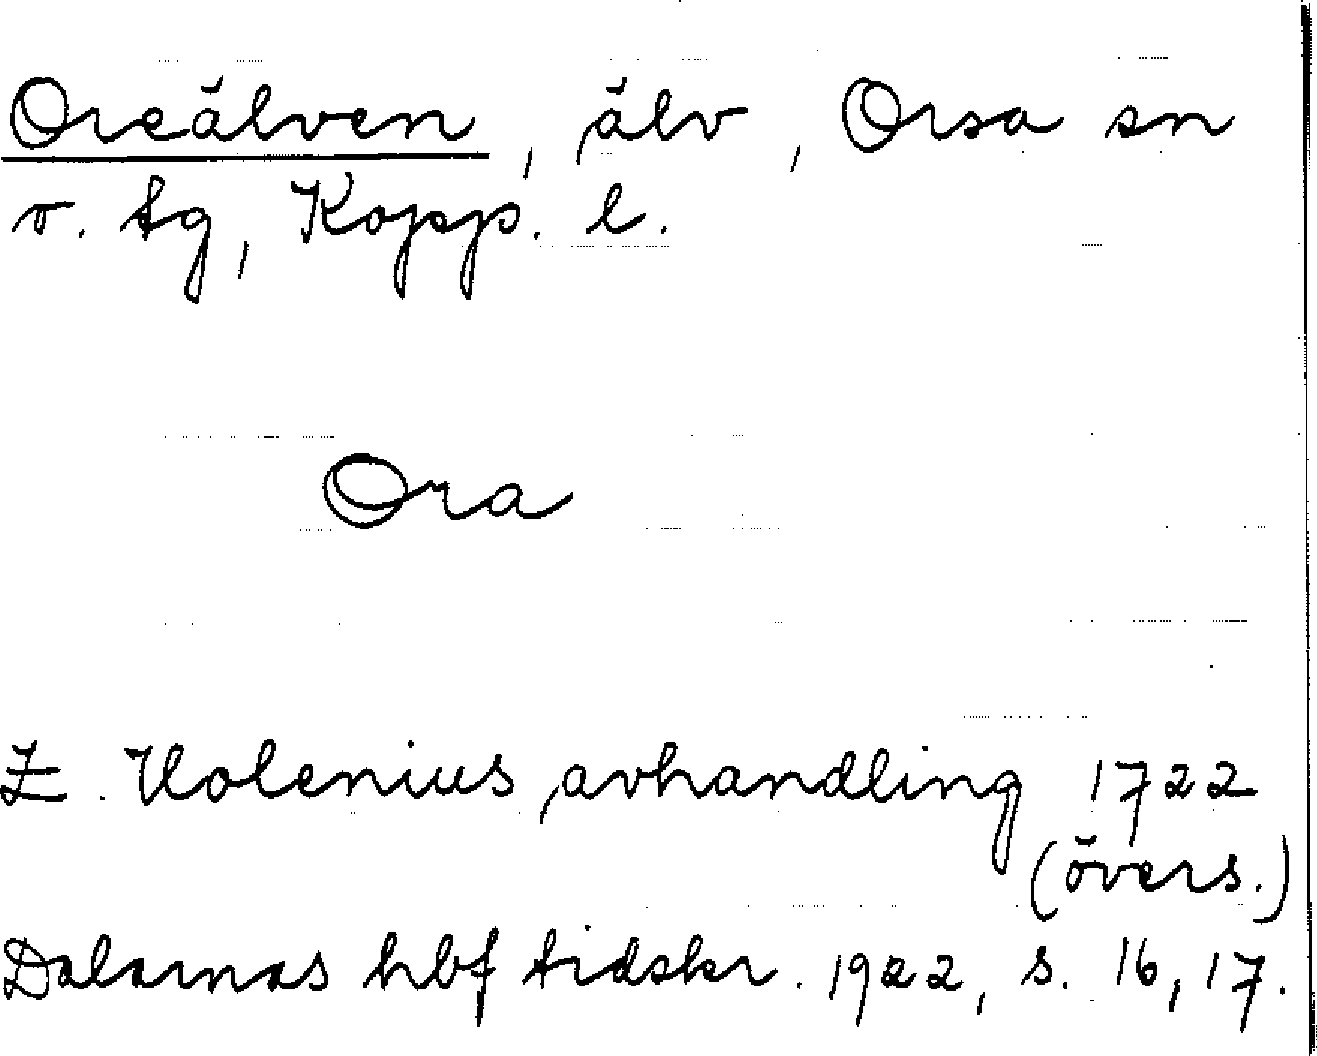 Oreälven, älv, Orsa sn
o. tg, Kopp. l.
Ora
Z. Holenius, avhandling 1722
(övers.)
Dalarnas hbf tidskr. 1922, s. 16, 17.